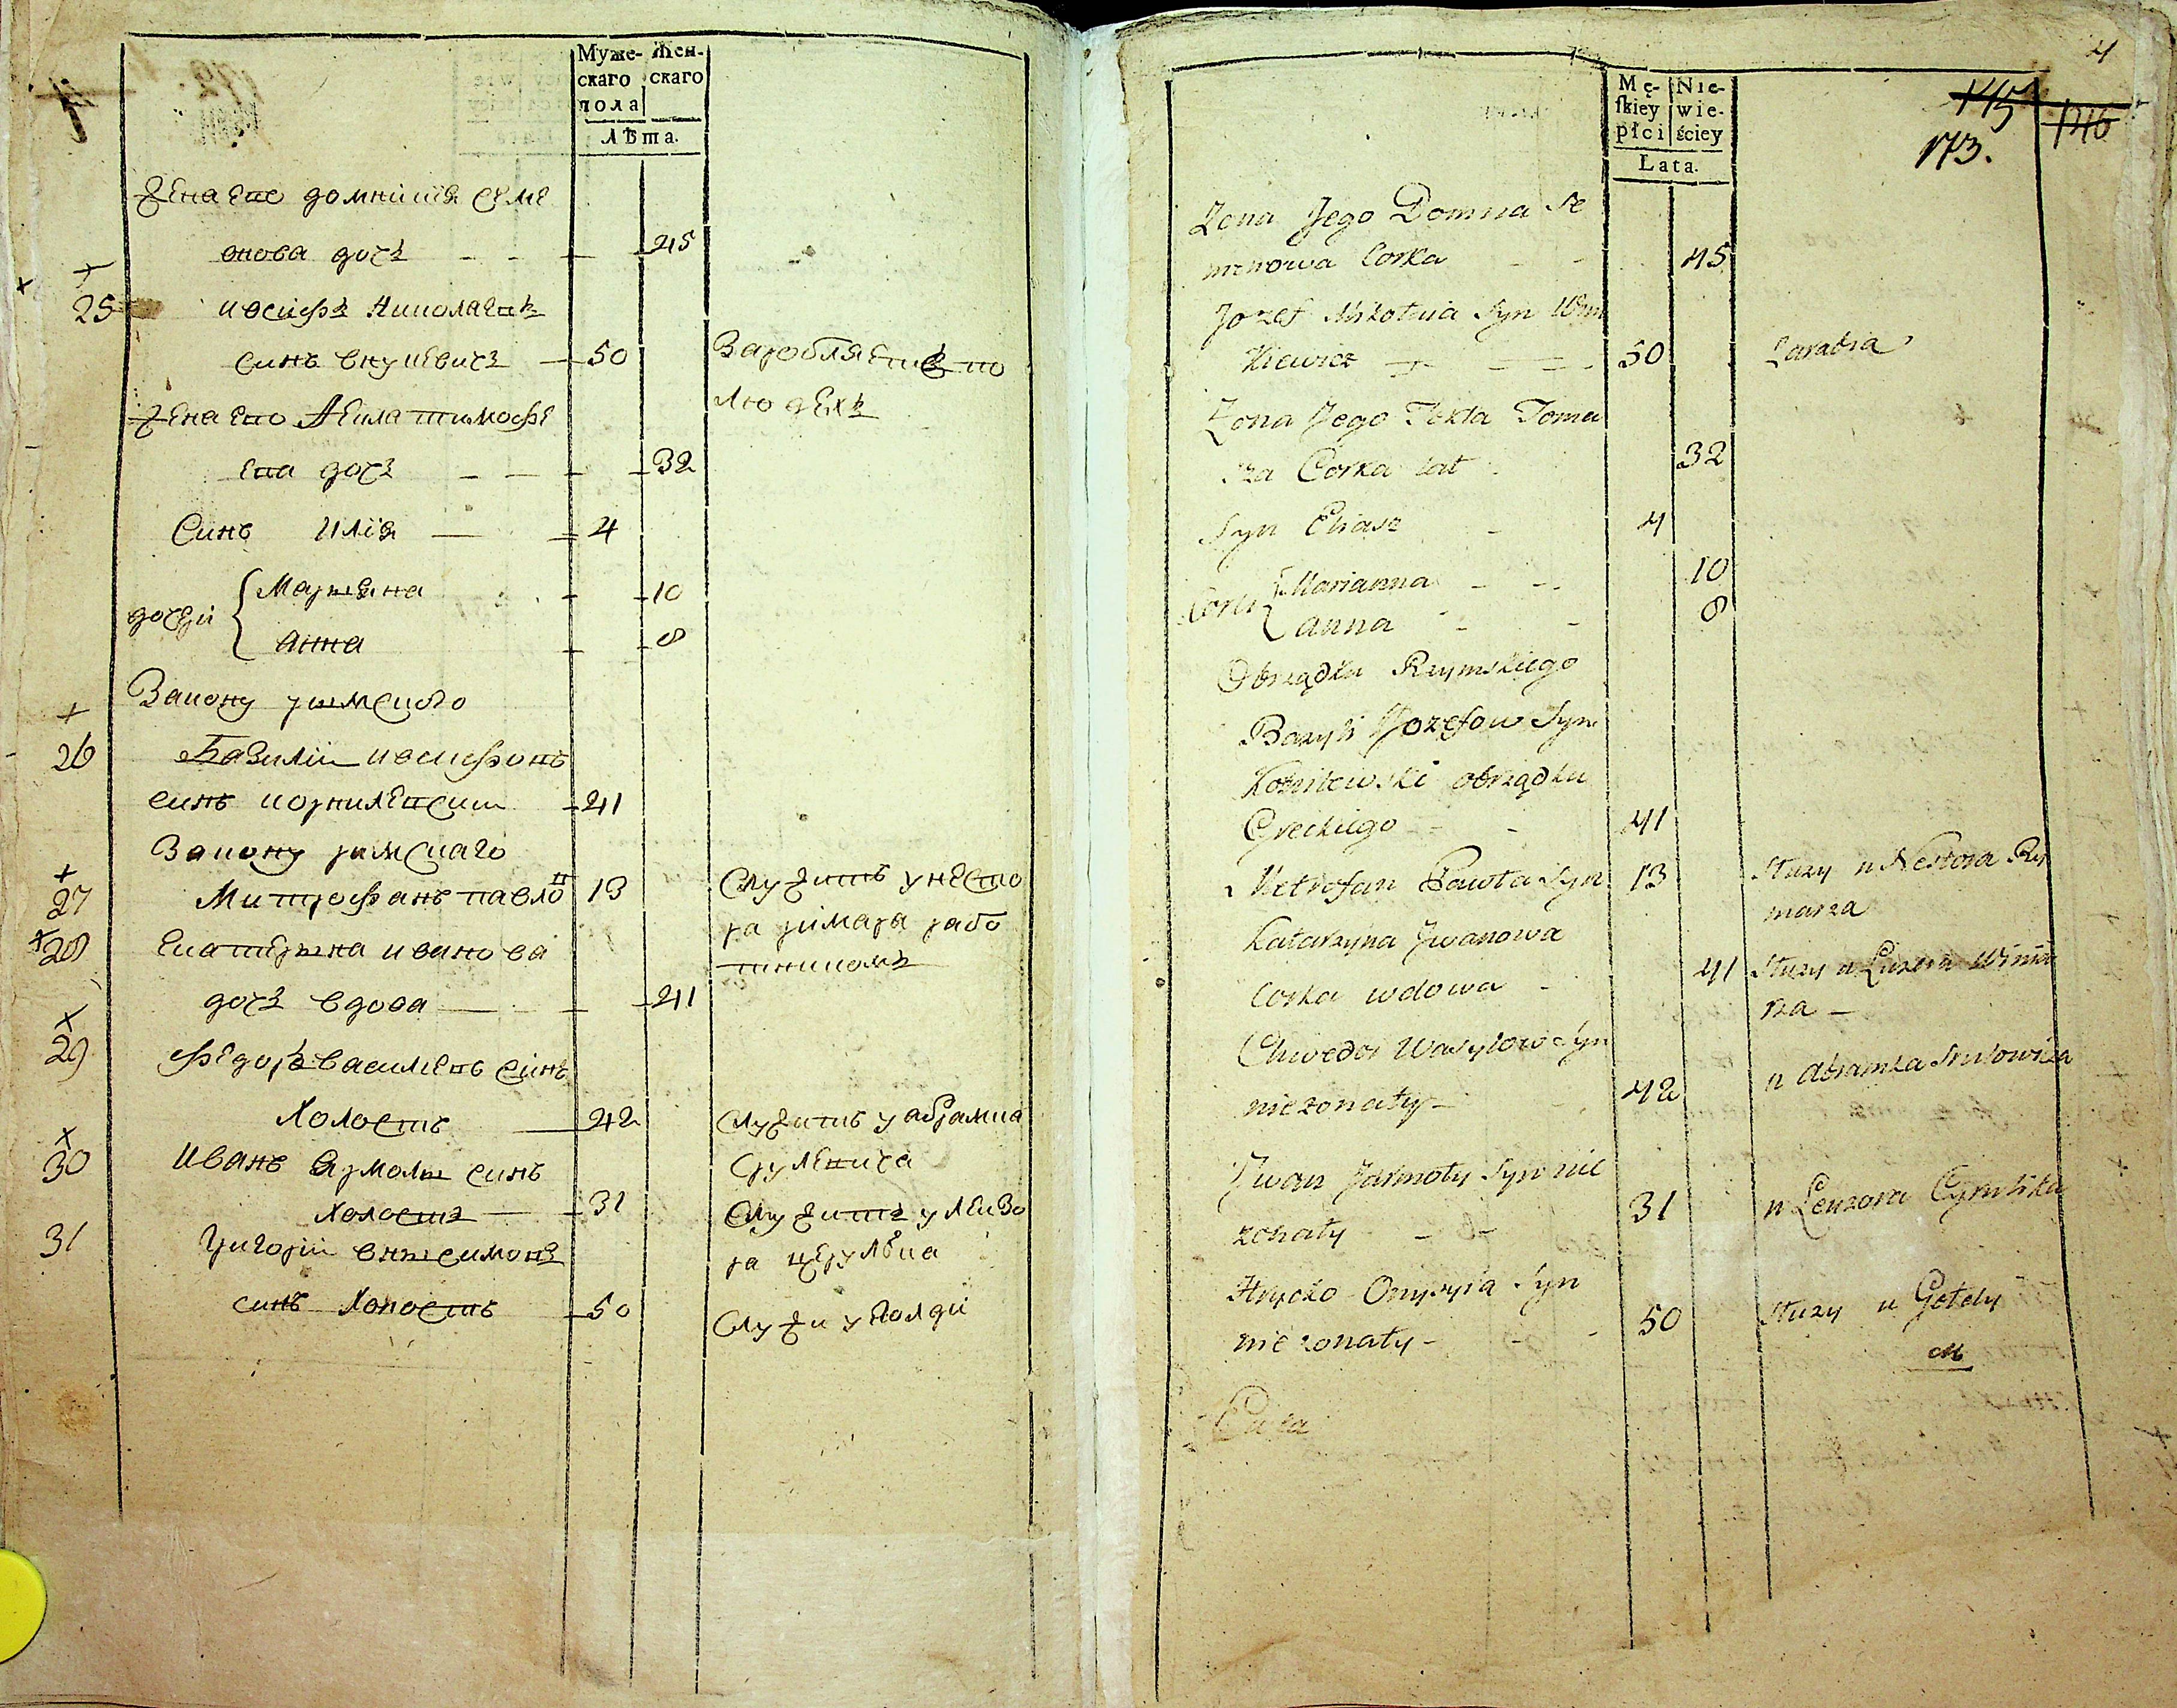 Муже- Жен-
скаго скаго
пола
Лѣта.
Жена его домникія семе
онова дочъ 45
25 иосифъ николаевъ
синъ внукевичъ 50 Заробляетъ по
людехъ
Жена его Текла тимофе
ева дочъ 32
Синъ Илія 4
дочери { Маріяна 10
анна 8
Закону римского
26 Базилій иосифовъ
синъ корнилевски 41
Закону римскаго
27 Митрофанъ павловъ 13 Служитъ у несто
ра римара рабо
тникомъ
28 Екатерина иванова
дочъ вдова 41
29 Федоръ василіевъ синъ
Холостъ 42 Служитъ у абрамка
Срулевича
30 Иванъ Ярмолы синъ
Холостъ 31 Служитъ у лейзо
ра церулѣка
31 Григорій
синъ Холостъ 50 Служи у Голди
4
145
146
173.
Mę- Nie-
skiey wie-
płci ściey
Lata.
Zona Jego Domna Se
menowa Corka 45
Jozef Mikołaia Syn Wnu
kiewicz 50 Zarabia
Zona Jego Tekla Toma
sza Corka lat 32
Syn Eliasz 4
Corki { Marianna 10
Anna 8
Obrządku Rzymskiego
Bazyli Jozefow Syn
Kornilewski obrządku
Greckiego 41
Metrofan Pawła Syn 13 Służy u Nestora Ry
marza
Katarzyna Jwanowa
Corka wdowa 41 Służy u Winia
rza
Chwedor Wasylow Syn
niezonaty 42 u Abramka Srulowicza
Jwan Jarmoły Syn nie
zonaty 31 u Leyzora Cyrulika
Hrycko Onysyia Syn
niezonaty 50 Służy u Gołdy